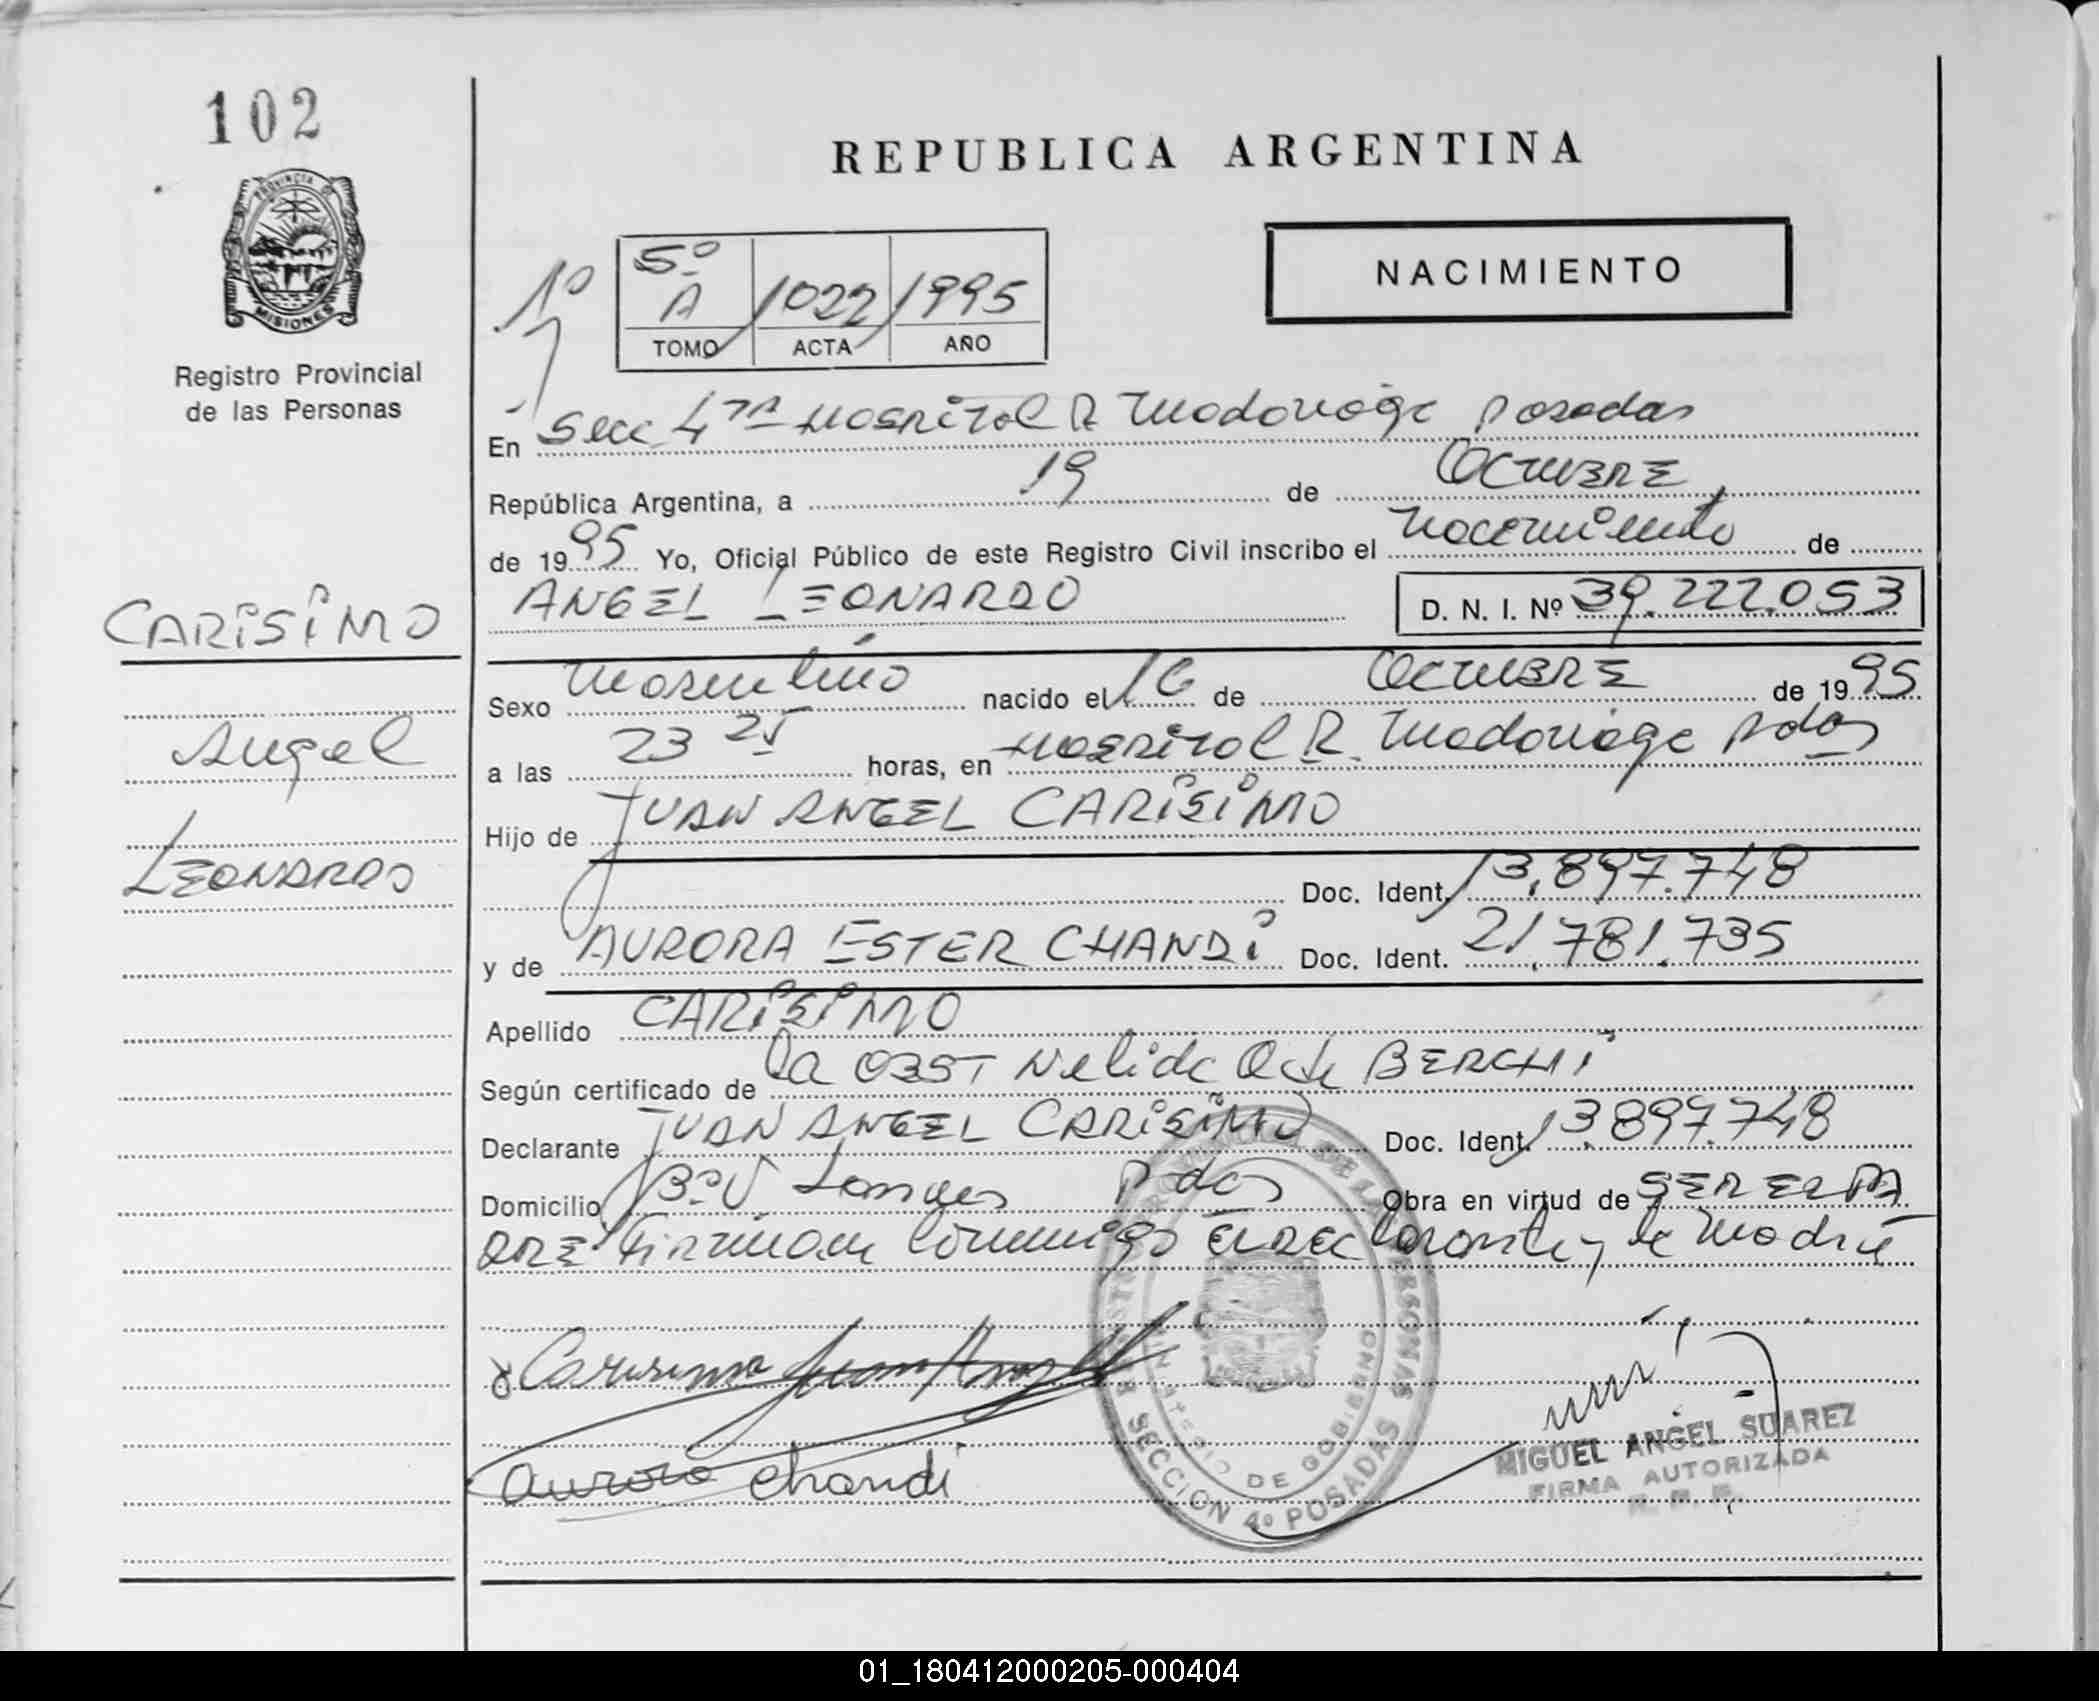 102
REPUBLICA ARGENTINA
PROVINCIA DE
MISIONES
Registro Provincial
de las Personas
1º
5º
A 1022 1995
TOMO ACTA AÑO
NACIMIENTO
En Secc 4ta Hospital R Madariaga Posadas
República Argentina, a 19 de Octubre
de 1995 Yo, Oficial Público de este Registro Civil inscribo el nacimiento de
CARISIMO
ANGEL LEONARDO D. N. I. Nº 39.222.053
Sexo Masculino nacido el 16 de Octubre de 1995
Angel
a las 23 25 horas, en Hospital R. Madariaga Pdas
Hijo de JUAN ANGEL CARISIMO
LEONARDO
Doc. Ident. 13.897.748
y de AURORA ESTER CHANDI Doc. Ident. 21.781.735
Apellido CARISIMO
Según certificado de la OBST Nelida BERCHI
Declarante JUAN ANGEL CARISIMO Doc. Ident. 13.897.748
Domicilio Bº Pdas Obra en virtud de SER EL PA
DRE Firman conmigo el declarante y la Madre
Carisimo Juan Angel
Aurora Chandi
MIGUEL ANGEL SUAREZ
FIRMA AUTORIZADA
DE LAS PERSONAS
MINISTERIO DE GOBIERNO
SECCION 4º POSADAS
01_180412000205-000404